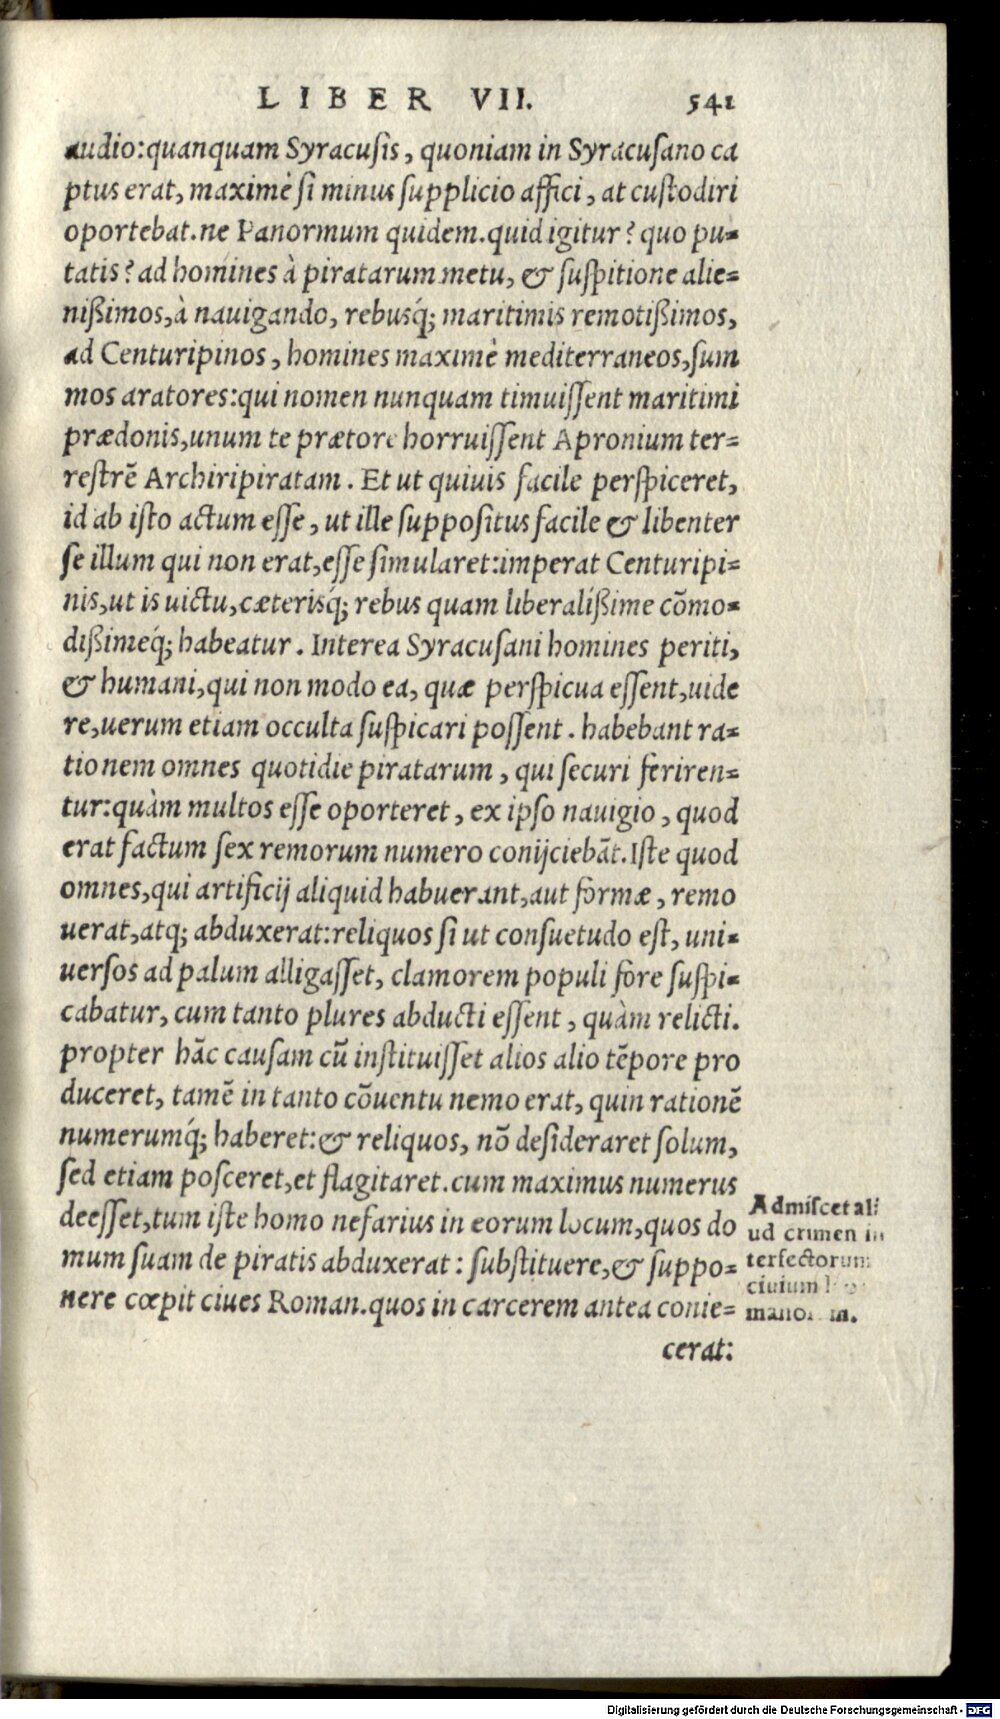 LIBER VII. 541
audio:quanquam Syracuſis, quoniam in Syracuſano ca
ptus erat, maximè ſi minus ſupplicio affici, at cuſtodiri
oportebat.ne Panormum quidem.quid igitur? quo pu-
tatis? ad homines à piratarum metu, & ſuſpitione alie-
nißimos,à nauigando, rebusq́; maritimis remotißimos,
ad Centuripinos, homines maximè mediterraneos,ſum
mos aratores:qui nomen nunquam timuiſſent maritimi
prædonis,unum te prætore horruiſſent Apronium ter-
reſtrē Archiripiratam. Et ut quiuis facile perſpiceret,
id ab iſto actum eſſe, ut ille ſuppoſitus facile & libenter
ſe illum qui non erat,eſſe ſimularet:imperat Centuripi-
nis,ut is uictu,cæterisq́; rebus quam liberalißime cōmo-
dißimeq́; habeatur. Interea Syracuſani homines periti,
& humani,qui non modo ea, quæ perſpicua eſſent,uide
re,uerum etiam occulta ſuſpicari poſſent. habebant ra-
tionem omnes quotidie piratarum, qui ſecuri ferіren-
tur:quàm multos eſſe oporteret, ex ipſo nauigio, quod
erat factum ſex remorum numero conijciebāt.Iſte quod
omnes,qui artificij aliquid habuerant,aut formæ, remo
uerat,atq; abduxerat:reliquos ſi ut conſuetudo eſt, uni-
uerſos ad palum alligaſſet, clamorem populi fore ſuſpi-
cabatur, cum tanto plures abducti eſſent, quàm relicti.
propter hāc cauſam cū inſtituiſſet alios alio tēpore pro
duceret, tamē in tanto cōuentu nemo erat, quin rationē
numerumq́; haberet:& reliquos, nō deſideraret ſolum,
ſed etiam poſceret,et flagitaret.cum maximus numerus
deeſſet,tum iſte homo nefarius in eorum locum,quos do
mum ſuam de piratis abduxerat: ſubſtituere,& ſuppo-
nere cœpit ciues Roman.quos in carcerem antea conie-
cerat:
Admiſcet ali
ud crimen in
terfectorum
ciuium
Digitalisierung gefördert durch die Deutsche Forschungsgemeinschaft - DFG